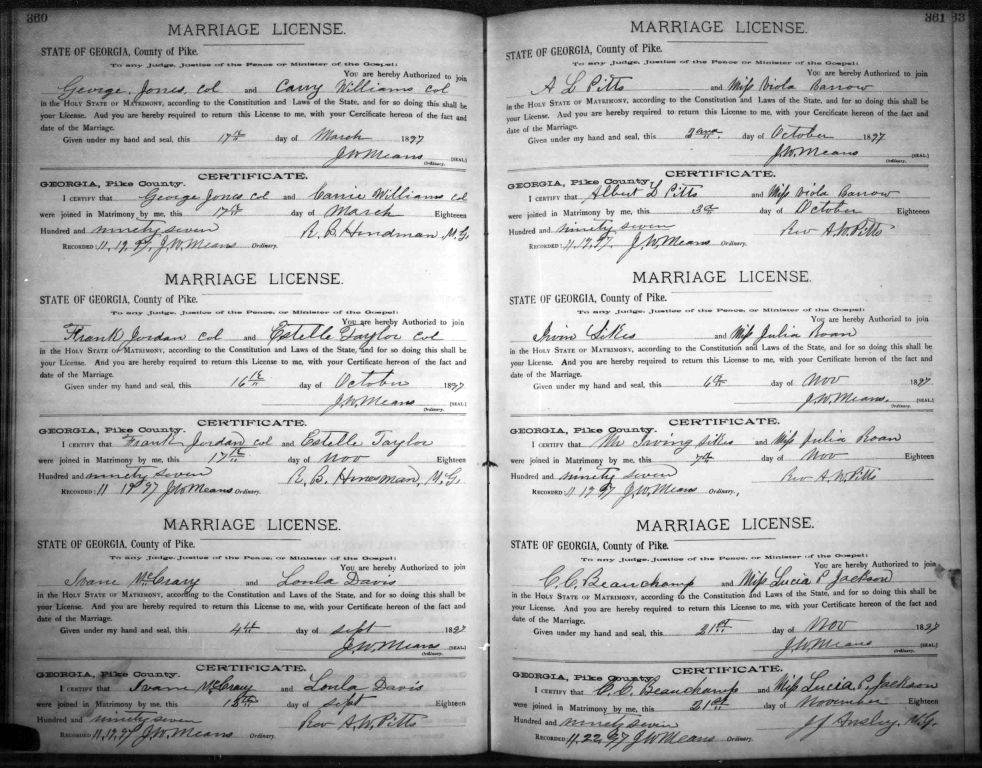 360
MARRIAGE LICENSE.
STATE OF GEORGIA, County of Pike.
To any Judge, Justice of the Peace or Minister of the Gospel:
You are hereby Authorized to join
George Jones, Col and Carry Williams Col
in the HOLY STATE OF MATRIMONY, according to the Constitution and Laws of the State, and for so doing this shall be
your License. And you are hereby required to return this License to me, with your Cercificate hereon of the fact and
date of the Marriage.
Given under my hand and seal, this 17th day of March 1897
J.W. Means [SEAL]
Ordinary.
CERTIFICATE.
GEORGIA, Pike County.
I CERTIFY that George Jones Col and Carrie Williams Col
were joined in Matrimony by me, this 17th day of March Eighteen
Hundred and ninety seven R. B. Hindman M.G.
RECORDED: 11.12.97. J.W. Means Ordinary.
MARRIAGE LICENSE.
STATE OF GEORGIA, County of Pike.
To any Judge, Justice of the Peace, or Minister of the Gospel:
You are hereby Authorized to join
Frank Jordan Col and Estelle Taylor Col
in the HOLY STATE OF MATRIMONY, according to the Constitution and Laws of the State, and for so doing this shall be
your License. And you are hereby required to return this License to me, with your Certificate hereon of the fact and
date of the Marriage.
Given under my hand and seal, this 16th day of October 1897
J.W. Means [SEAL]
Ordinary.
CERTIFICATE.
GEORGIA, Pike County.
I CERTIFY that Frank Jordan Col and Estelle Taylor
were joined in Matrimony by me, this 17th day of Nov Eighteen
Hundred and ninety seven R. B. Hinesman, M.G.
RECORDED: 11 19 97 J.W. Means Ordinary.
MARRIAGE LICENSE.
STATE OF GEORGIA, County of Pike.
To any Judge, Justice of the Peace, or Minister of the Gospel:
You are hereby Authorized to join
Ivane McCrary and Loula Davis
in the HOLY STATE OF MATRIMONY, according to the Constitution and Laws of the State, and for so doing this shall be
your License. And you are hereby required to return this License to me, with your Certificate hereon of the fact and
date of the Marriage.
Given under my hand and seal, this 4th day of Sept 1897
J.W. Means [SEAL]
Ordinary.
CERTIFICATE.
GEORGIA, Pike County.
I CERTIFY that Ivane McCrary and Loula Davis
were joined in Matrimony by me, this 12th day of Sept Eighteen
Hundred and ninety seven Rev A.W. Pitts
RECORDED 11.12.97 J.W. Means Ordinary.
361 33
MARRIAGE LICENSE.
STATE OF GEORGIA, County of Pike.
To any Judge, Justice of the Peace or Minister of the Gospel:
You are hereby Authorized to join
A L Pitts and Miss Viola Barrow
in the HOLY STATE OF MATRIMONY, according to the Constitution and Laws of the State, and for so doing this shall be
your License. And you are hereby required to return this License to me, with your Cercificate hereon of the fact and
date of the Marriage.
Given under my hand and seal, this 2nd day of October 1897
J.W. Means [SEAL]
Ordinary.
CERTIFICATE.
GEORGIA, Pike County.
I CERTIFY that Albert L Pitts and Miss Viola Barrow
were joined in Matrimony by me, this 3rd day of October Eighteen
Hundred and ninety seven Rev A.W. Pitts
RECORDED: 11.12.97. J.W. Means Ordinary.
MARRIAGE LICENSE.
STATE OF GEORGIA, County of Pike.
To any Judge, Justice of the Peace, or Minister of the Gospel:
You are hereby Authorized to join
Irvin Sikes and Miss Julia Roan
in the HOLY STATE OF MATRIMONY, according to the Constitution and Laws of the State, and for so doing this shall be
your License. And you are hereby required to return this License to me, with your Certificate hereon of the fact and
date of the Marriage.
Given under my hand and seal, this 6th day of Nov 1897
J.W. Means. [SEAL]
Ordinary.
CERTIFICATE.
GEORGIA, Pike County.
I CERTIFY that Mr Irving Sikes and Miss Julia Roan
were joined in Matrimony by me, this 7th day of Nov Eighteen
Hundred and ninety seven Rev A.W. Pitts
RECORDED: 11.12.97 J.W. Means Ordinary.
MARRIAGE LICENSE.
STATE OF GEORGIA, County of Pike.
To any Judge, Justice of the Peace, or Minister of the Gospel:
You are hereby Authorized to join
C.C. Beauchamp and Miss Lucia P. Jackson
in the HOLY STATE OF MATRIMONY, according to the Constitution and Laws of the State, and for so doing this shall be
your License. And you are hereby required to return this License to me, with your Certificate hereon of the fact and
date of the Marriage.
Given under my hand and seal, this 21st day of Nov 1897
J.W. Means [SEAL]
Ordinary.
CERTIFICATE.
GEORGIA, Pike County.
I CERTIFY that C.C. Beauchamp and Miss Lucia P. Jackson
were joined in Matrimony by me, this 21st day of November Eighteen
Hundred and ninety seven J.J. Ansley, M.G.
RECORDED 11.22.97 J.W. Means Ordinary.